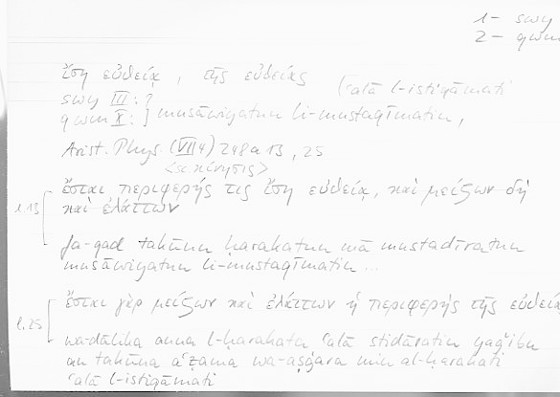 1- swy
2- qwm
ἴση εὐθείᾳ, τῆς εὐθείας (ʿalā l-istiqāmati
swy III: ?
qwm X: ] musāwiyatun li-mustaqīmatin,
Arist. Phys. (VII 4) 248a 13, 25
<sc. κίνησις>
l.13 ἔσται περιφερής τις ἴση εὐθείᾳ, καὶ μείζων δὴ
καὶ ἐλάττων
fa-qad takūnu ḥarakatun mā mustadīratun
musāwiyatun li-mustaqīmatin...
l.25 ἔσται γὰρ μείζων καὶ ἐλάττων ἡ περιφερὴς τῆς εὐθεία
wa-ḏālika anna l-ḥarakata ʿalā stidāratin yaǧibu
an takūna aʿẓama wa-aṣġara min al-ḥarakati
ʿalā l-istiqāmati